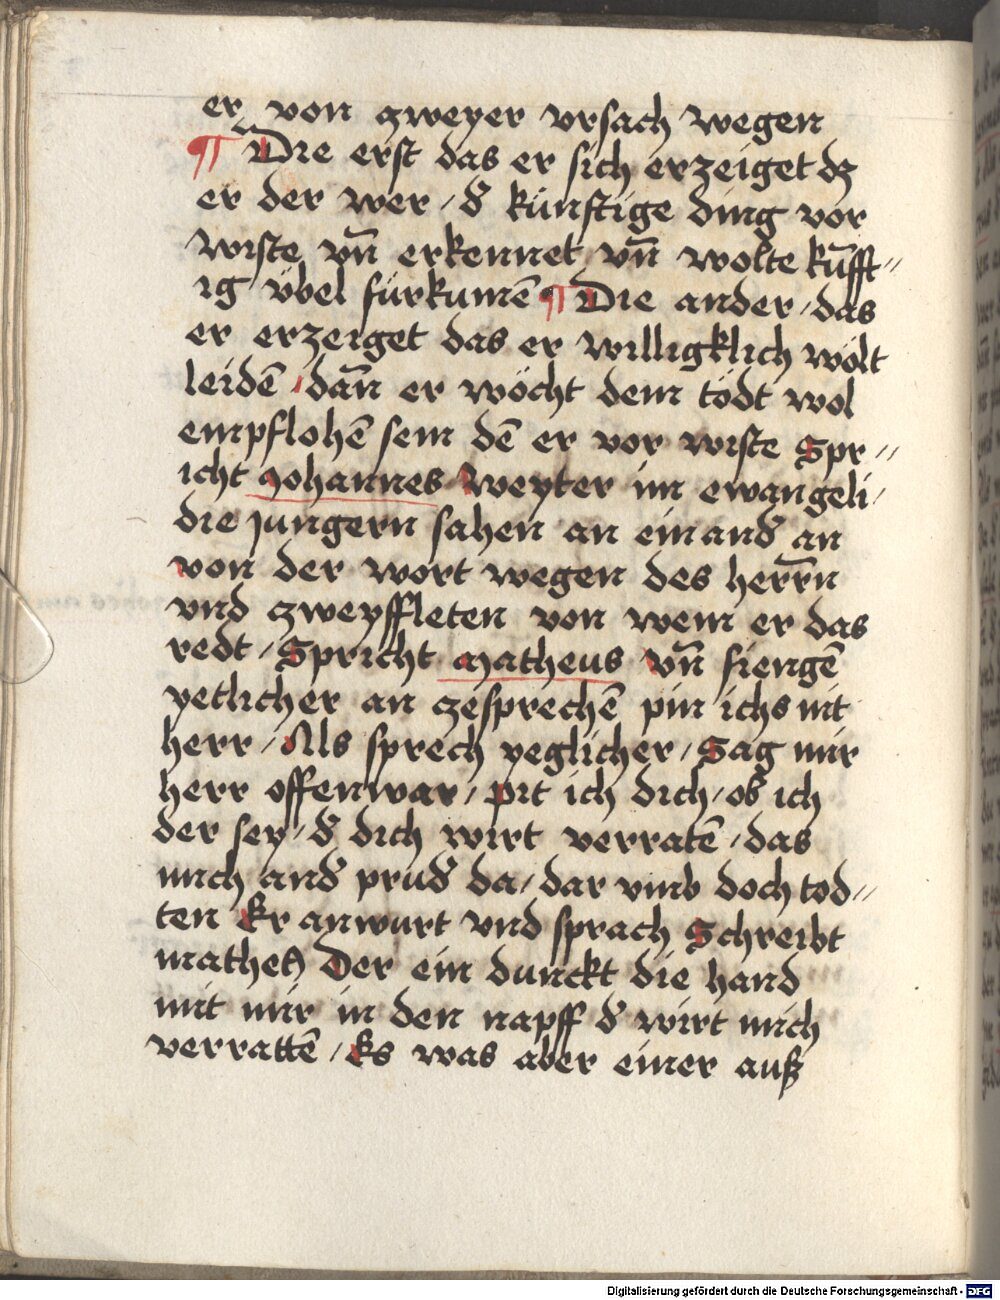 er von zweyer vrsach wegen
¶ Die erst das er sich erzeiget dz
er der wer / d̄ künftige ding vor
wiste vn̄ erkennet vn̄ wolte kūfft//
ig übel fürkumē ¶ Die ander / das
er erzeiget das er willigklich wölt
leidē / dan̄ er möcht dem tödt wol
empflohē sein dē er vor wiste Spr//
icht Johannes weyter im ewangeli /
die jungern sahen an einand̄ an
von der wort wegen des herrn̄
vnd zweyffleten von wem er das
redt / Spricht Matheus vn̄ fiengē
yetlicher an zesprechē pin ichs nit
herr / Als sprech yeglicher / Sag mir
herr offenwar / pit ich dich / ob ich
der sey / d̄ dich wirt verratē / das
mich and̄ prüd̄ da / dar vmb doch tod//
ten Er anwurt vnd sprach Schreibt
matheus Der ein dunckt die hand
mit mir in den napff d̄ wirt mich
verrattē / Es was aber einer auß
Digitalisierung gefördert durch die Deutsche Forschungsgemeinschaft - DFG